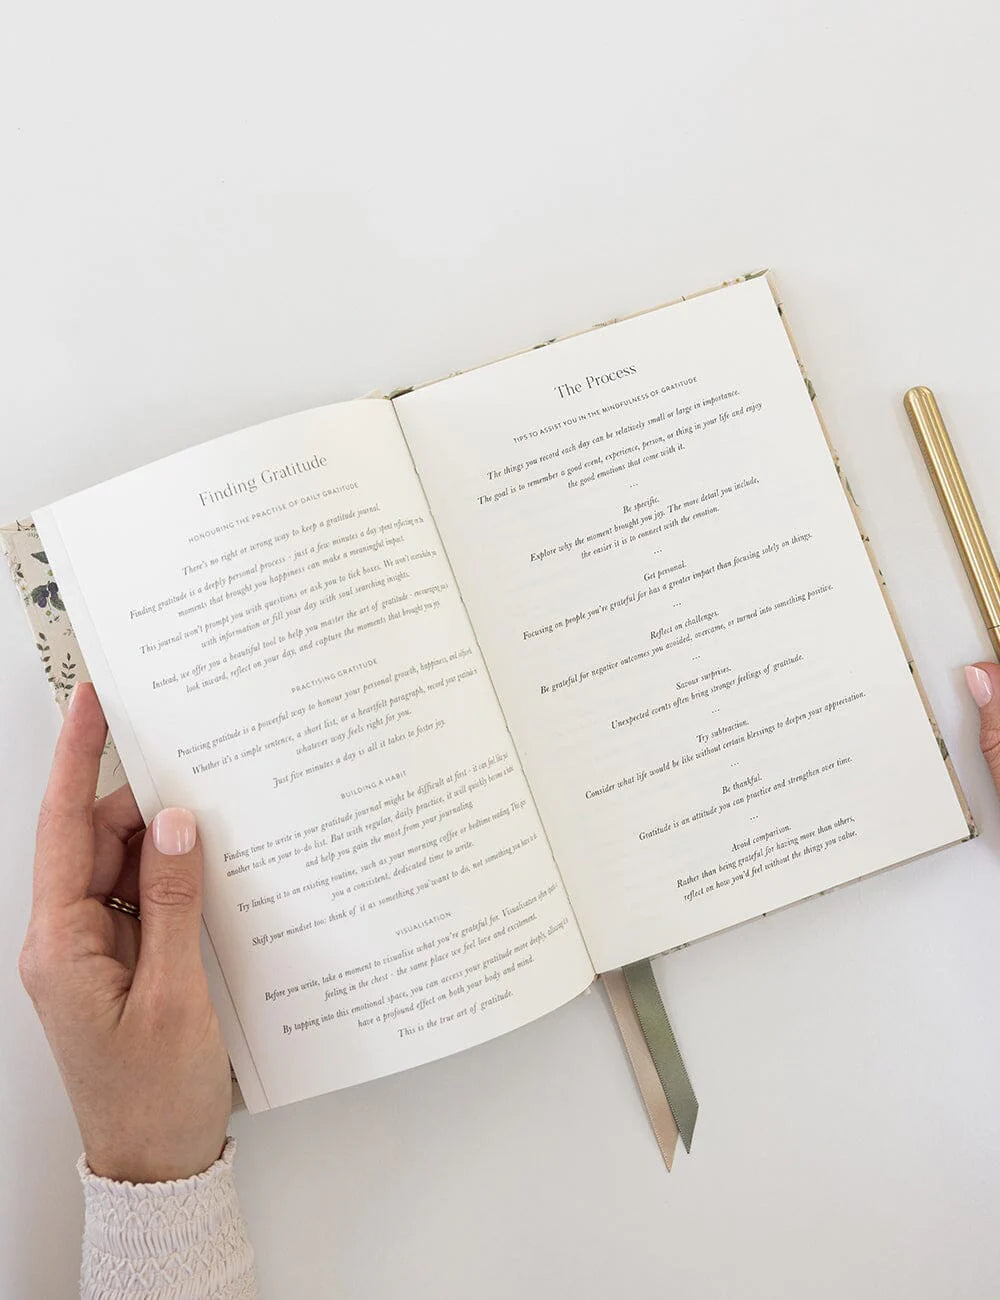 Finding Gratitude
HONOURING THE PRACTISE OF DAILY GRATITUDE
There's no right or wrong way to keep a gratitude journal.
Finding gratitude is a deeply personal process - just a few minutes a day spent reflecting on the
moments that brought you happiness can make a meaningful impact.
This journal won't prompt you with questions or ask you to tick boxes. We won't overwhelm you
with information or fill your day with soul searching insights.
Instead, we offer you a beautiful tool to help you master the art of gratitude - encouraging you to
look inward, reflect on your day, and capture the moments that brought you joy.
PRACTISING GRATITUDE
Practicing gratitude is a powerful way to honour your personal growth, happiness, and
Whether it's a simple sentence, a short list, or a heartfelt paragraph, record your gratitude in
whatever way feels right for you.
Just five minutes a day is all it takes to foster joy.
BUILDING A HABIT
Finding time to write in your gratitude journal might be difficult at first - it can feel like just
another task on your to-do list. But with regular, daily practice, it will quickly become a habit
and help you gain the most from your journaling
Try linking it to an existing routine, such as your morning coffee or bedtime reading. This gives
you a consistent, dedicated time to write.
Shift your mindset too: think of it as something you want to do, not something you have to do.
VISUALISATION
Before you write, take a moment to visualise what you're grateful for. Visualisation often
feeling in the chest - the same place we feel love and excitement.
By tapping into this emotional space, you can access your gratitude more deeply, allowing it to
have a profound effect on both your body and mind.
This is the true art of gratitude.
The Process
TIPS TO ASSIST YOU IN THE MINDFULNESS OF GRATITUDE
The things you record each day can be relatively small or large in importance.
The goal is to remember a good event, experience, person, or thing in your life and enjoy
the good emotions that come with it.
...
Be specific.
Explore why the moment brought you joy. The more detail you include,
the easier it is to connect with the emotion.
...
Get personal.
Focusing on people you're grateful for has a greater impact than focusing solely on things.
...
Reflect on challenges.
Be grateful for negative outcomes you avoided, overcame, or turned into something positive.
...
Savour surprises.
Unexpected events often bring stronger feelings of gratitude.
...
Try subtraction.
Consider what life would be like without certain blessings to deepen your appreciation.
...
Be thankful.
Gratitude is an attitude you can practice and strengthen over time.
...
Avoid comparison.
Rather than being grateful for having more than others,
reflect on how you'd feel without the things you value.